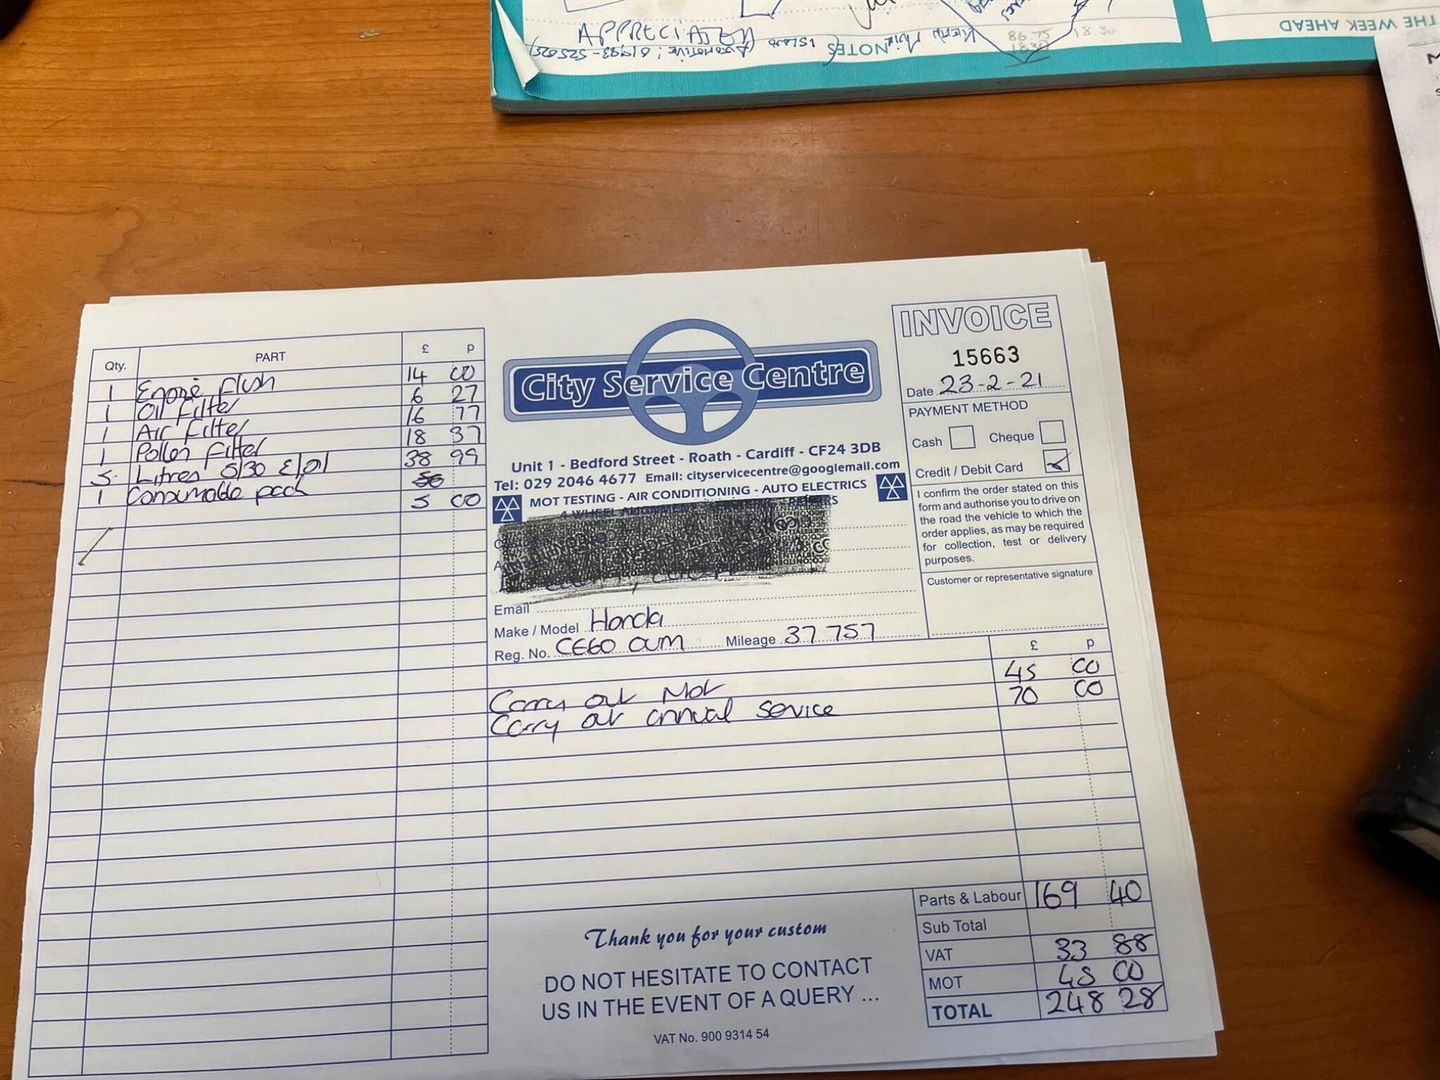 APPRECIA
NOTES
86.75
18.30
18.30
THE WEEK AHEAD
Qty. PART £ p
1 Engine Flush 14 00
1 Oil Filter 6 27
1 Air Filter 16 77
1 Pollen Filter 18 37
5 Litres 5/30 E/Oil 38 99
1 Consumable pack 5 00
City Service Centre
Unit 1 - Bedford Street - Roath - Cardiff - CF24 3DB
Tel: 029 2046 4677 Email: cityservicecentre@googlemail.com
MOT TESTING - AIR CONDITIONING - AUTO ELECTRICS
Email
Make / Model Honda
Reg. No. CE60 OUM Mileage 37 757
INVOICE
15663
Date 23-2-21
PAYMENT METHOD
Cash Cheque
Credit / Debit Card
I confirm the order stated on this
form and authorise you to drive on
the road the vehicle to which the
order applies, as may be required
for collection, test or delivery
purposes.
Customer or representative signature
£ p
Carry out Mot 45 00
Carry out annual service 70 00
Parts & Labour 169 40
Sub Total
VAT 33 88
MOT 45 00
TOTAL 248 28
Thank you for your custom
DO NOT HESITATE TO CONTACT
US IN THE EVENT OF A QUERY ...
VAT No. 900 9314 54